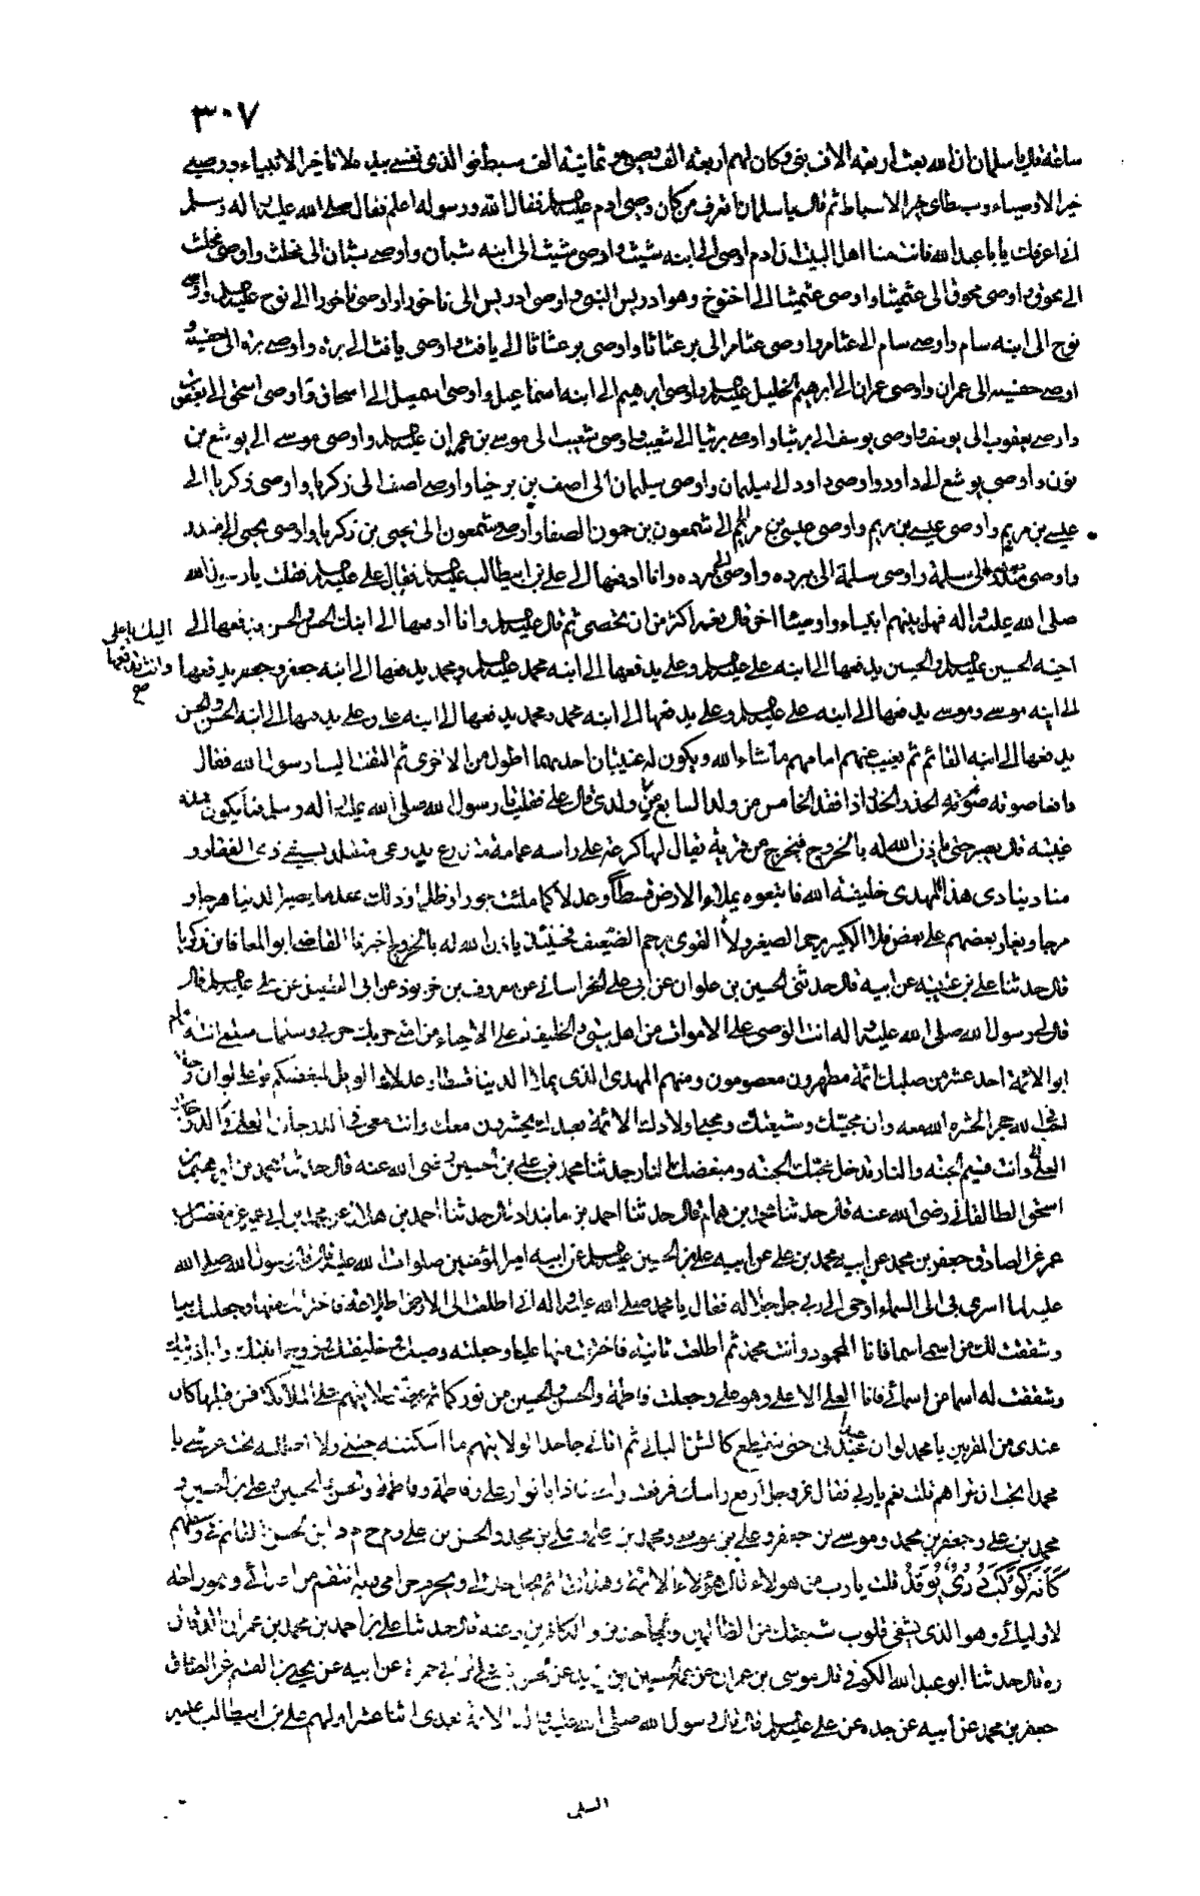 ٣٠٧
ساعة قال يا سلمان ان الله بعث اربعة الاف نبي وكان لهم اربعة الف وصي وثمانية الف سبط فوالذي نفسي بيده لانا خير الانبياء ووصيي
خير الاوصياء وسبطاي خير الاسباط ثم قال يا سلمان اتعرف من كان وصي ادم عليه السلم فقال الله ورسوله اعلم فقال صلى الله عليه واله وسلم
اني اعرفك يا با عبدالله فانت منا اهل البيت ان ادم اوصى الى ابنه شيث واوصى شيث الى ابنه شبان واوصى شبان الى مخلث واوصى مخلث
الى محوق واوصى محوق الى عثميثا واوصى عثميثا الى اخنوخ وهو ادريس النبي واوصى ادريس الى ناخورا واوصى ناخورا الى نوح عليه السلم واوصى
نوح الى ابنه سام واوصى سام الى عثامر واوصى عثامر الى برعثاثا واوصى برعثاثا الى يافث واوصى يافث الى بره واوصى بره الى حفيسه
اوصى حفيسه الى عمران واوصى عمران الى ابرهيم الخليل عليه السلم واوصى ابرهيم الى ابنه اسماعيل واوصى اسمعيل الى اسحاق واوصى اسحق الى يعقوب
واوصى يعقوب الى يوسف واوصى يوسف الى برثيا واوصى برثيا الى شعيب واوصى شعيب الى موسى بن عمران عليه السلم واوصى موسى الى يوشع بن
نون واوصى يوشع الى داود واوصى داود الى سليمان واوصى سليمان الى اصف بن برخيا واوصى اصف الى زكريا واوصى زكريا الى
عيسى بن مريم واوصى عيسى بن مريم واوصى عيسى بن مريم الى شمعون بن حمون الصفا واوصى شمعون الى يحيى بن زكريا واوصى يحيى الى منذر
واوصى منذر الى سلمة واوصى سلمة الى برده واوصى الي برده وانا ادفعها الى علي بن ابيطالب عليه السلم فقال علي عليه السلم فقلت يا رسول الله
صلى الله عليه واله فهل بينهم انبياء واوصياء اخر قال نعم اكثر من ان تحصى ثم قال عليه السلم وانا ادفعها الى ابنك الحسن والحسن يدفعها الى
اليك يا علي
وانت تدفعها
صح
اخيه الحسين عليه السلم والحسين يدفعها الى ابنه علي عليه السلم وعلي يدفعها الى ابنه محمد عليه السلم ومحمد يدفعها الى ابنه جعفر وجعفر يدفعها
الى ابنه موسى وموسى يدفعها الى ابنه علي عليه السلم وعلي يدفعها الى ابنه محمد ومحمد يدفعها الى ابنه علي وعلي يدفعها الى ابنه الحسن والحسن
يدفعها الى ابنه القائم ثم يغيب عنهم امامهم ما شاء الله ويكون له غيبتان احديهما اطول من الاخرى ثم التفت الينا رسول الله فقال
رافعا صوته الحذر الحذر اذا فقد الخامس من ولد السابع من ولدي قال علي فقلت يا رسول الله صلى الله عليه واله وسلم فما يكون
غيبته قال يصبر حتى ياذن الله له بالخروج فيخرج من قرية يقال لها كرعه على راسه عمامة متدرع بدرعي متقلد بسيفي ذي الفقار و
مناد ينادي هذا المهدي خليفة الله فاتبعوه يملاء الارض قسطا وعدلا كما ملئت جورا وظلما وذلك عندما يصير الدنيا هرجا و
مرجا ويغار بعضهم على بعض فلا الكبير يرحم الصغير ولا القوي يرحم الضعيف فحينئذ ياذن الله له بالخروج اخبرنا القاضي ابو المعافا بن زكريا
قال حدثنا علي بن عتبه عن ابيه قال حدثني الحسين بن علوان عن ابي علي الخراساني عن معروف بن خربوذ عن ابي الطفيل عن علي عليه السلم قال
قال لي رسول الله صلى الله عليه واله انت الوصي على الاموات من اهل بيتي والخليفة على الاحياء من امتي حربك حربي وسلمك سلمي انت الامام
ابو الائمة احد عشر من صلبك ائمة مطهرون معصومون ومنهم المهدي الذي يملا الدنيا قسطا وعدلا فالويل لمبغضكم يا علي لو ان رجلا
احب في الله حجرا لحشره الله معه وان محبيك وشيعتك ومحبي اولادك الائمة بعدك يحشرون معك وانت معي في الدرجات العلى
وانت قسيم الجنه والنار تدخل محبيك الجنه ومبغضيك النار حدثنا محمد بن علي بن الحسين رضي الله عنه قال حدثنا محمد بن ابرهيم بن
اسحق الطالقاني رضي الله عنه قال حدثنا محمد بن همام قال حدثنا احمد بن مابنداد قال حدثنا احمد بن هلال عن محمد بن ابي عمير عن مفضل بن
عمر عن الصادق جعفر بن محمد عن ابيه محمد بن علي عن ابيه علي بن الحسين عليه السلم عن ابيه امير المؤمنين صلوات الله عليه قال قال رسول الله صلى الله
عليه لما اسري بي الى السماء اوحى الي ربي جل جلاله فقال يا محمد صلى الله عليه واله اني اطلعت الى الارض اطلاعة فاخترتك منها وجعلتك نبيا
وشققت لك من اسمي اسما فانا المحمود وانت محمد ثم اطلعت ثانية فاخترت منها عليا وجعلته وصيك وخليفتك وزوج ابنتك وابا ذريتك
وشققت له اسما من اسمائي فانا العلي الاعلى وهو علي وجعلت فاطمة والحسن والحسين من نوركما ثم عرضت ولايتهم على الملائكة فمن قبلها كان
عندي من المقربين يا محمد لو ان عبدا عبدني حتى ينقطع كالشن البالي ثم اتاني جاحدا لولايتهم ما اسكنته جنتي ولا اظللته تحت عرشي يا
محمد اتحب ان تراهم قلت نعم يا ربي فقال عز وجل ارفع راسك فرفعت راسي فاذا بانوار علي وفاطمة والحسن والحسين وعلي بن الحسين و
محمد بن علي وجعفر بن محمد وموسى بن جعفر وعلي بن موسى ومحمد بن علي وعلي بن محمد والحسن بن علي و م ح م د ابن الحسن القائم في وسطهم
كَأَنَّهُ كَوْكَبٌ دُرِّيٌّ يُوقَدُ قلت يا رب من هولاء قال هؤلاء الائمة وهذا القائم يحل حلالي ويحرم حرامي وبه انتقم من اعدائي وهو راحة
لاوليائي وهو الذي يشفي قلوب شيعتك من الظالمين والجاحدين والكافرين وعنه قال حدثنا علي بن احمد بن محمد بن عمران الدقاق
ره قال حدثنا ابو عبدالله الكوفي قال موسى بن عمران عن عمه الحسين بن يزيد عن الحسن بن علي بن ابي حمزة عن ابيه عن يحيى بن القسم عن الصادق
جعفر بن محمد عن ابيه عن جده عن علي عليه السلم قال قال رسول الله صلى الله عليه واله الائمة بعدي اثنا عشر اولهم علي بن ابيطالب عليه
السلم